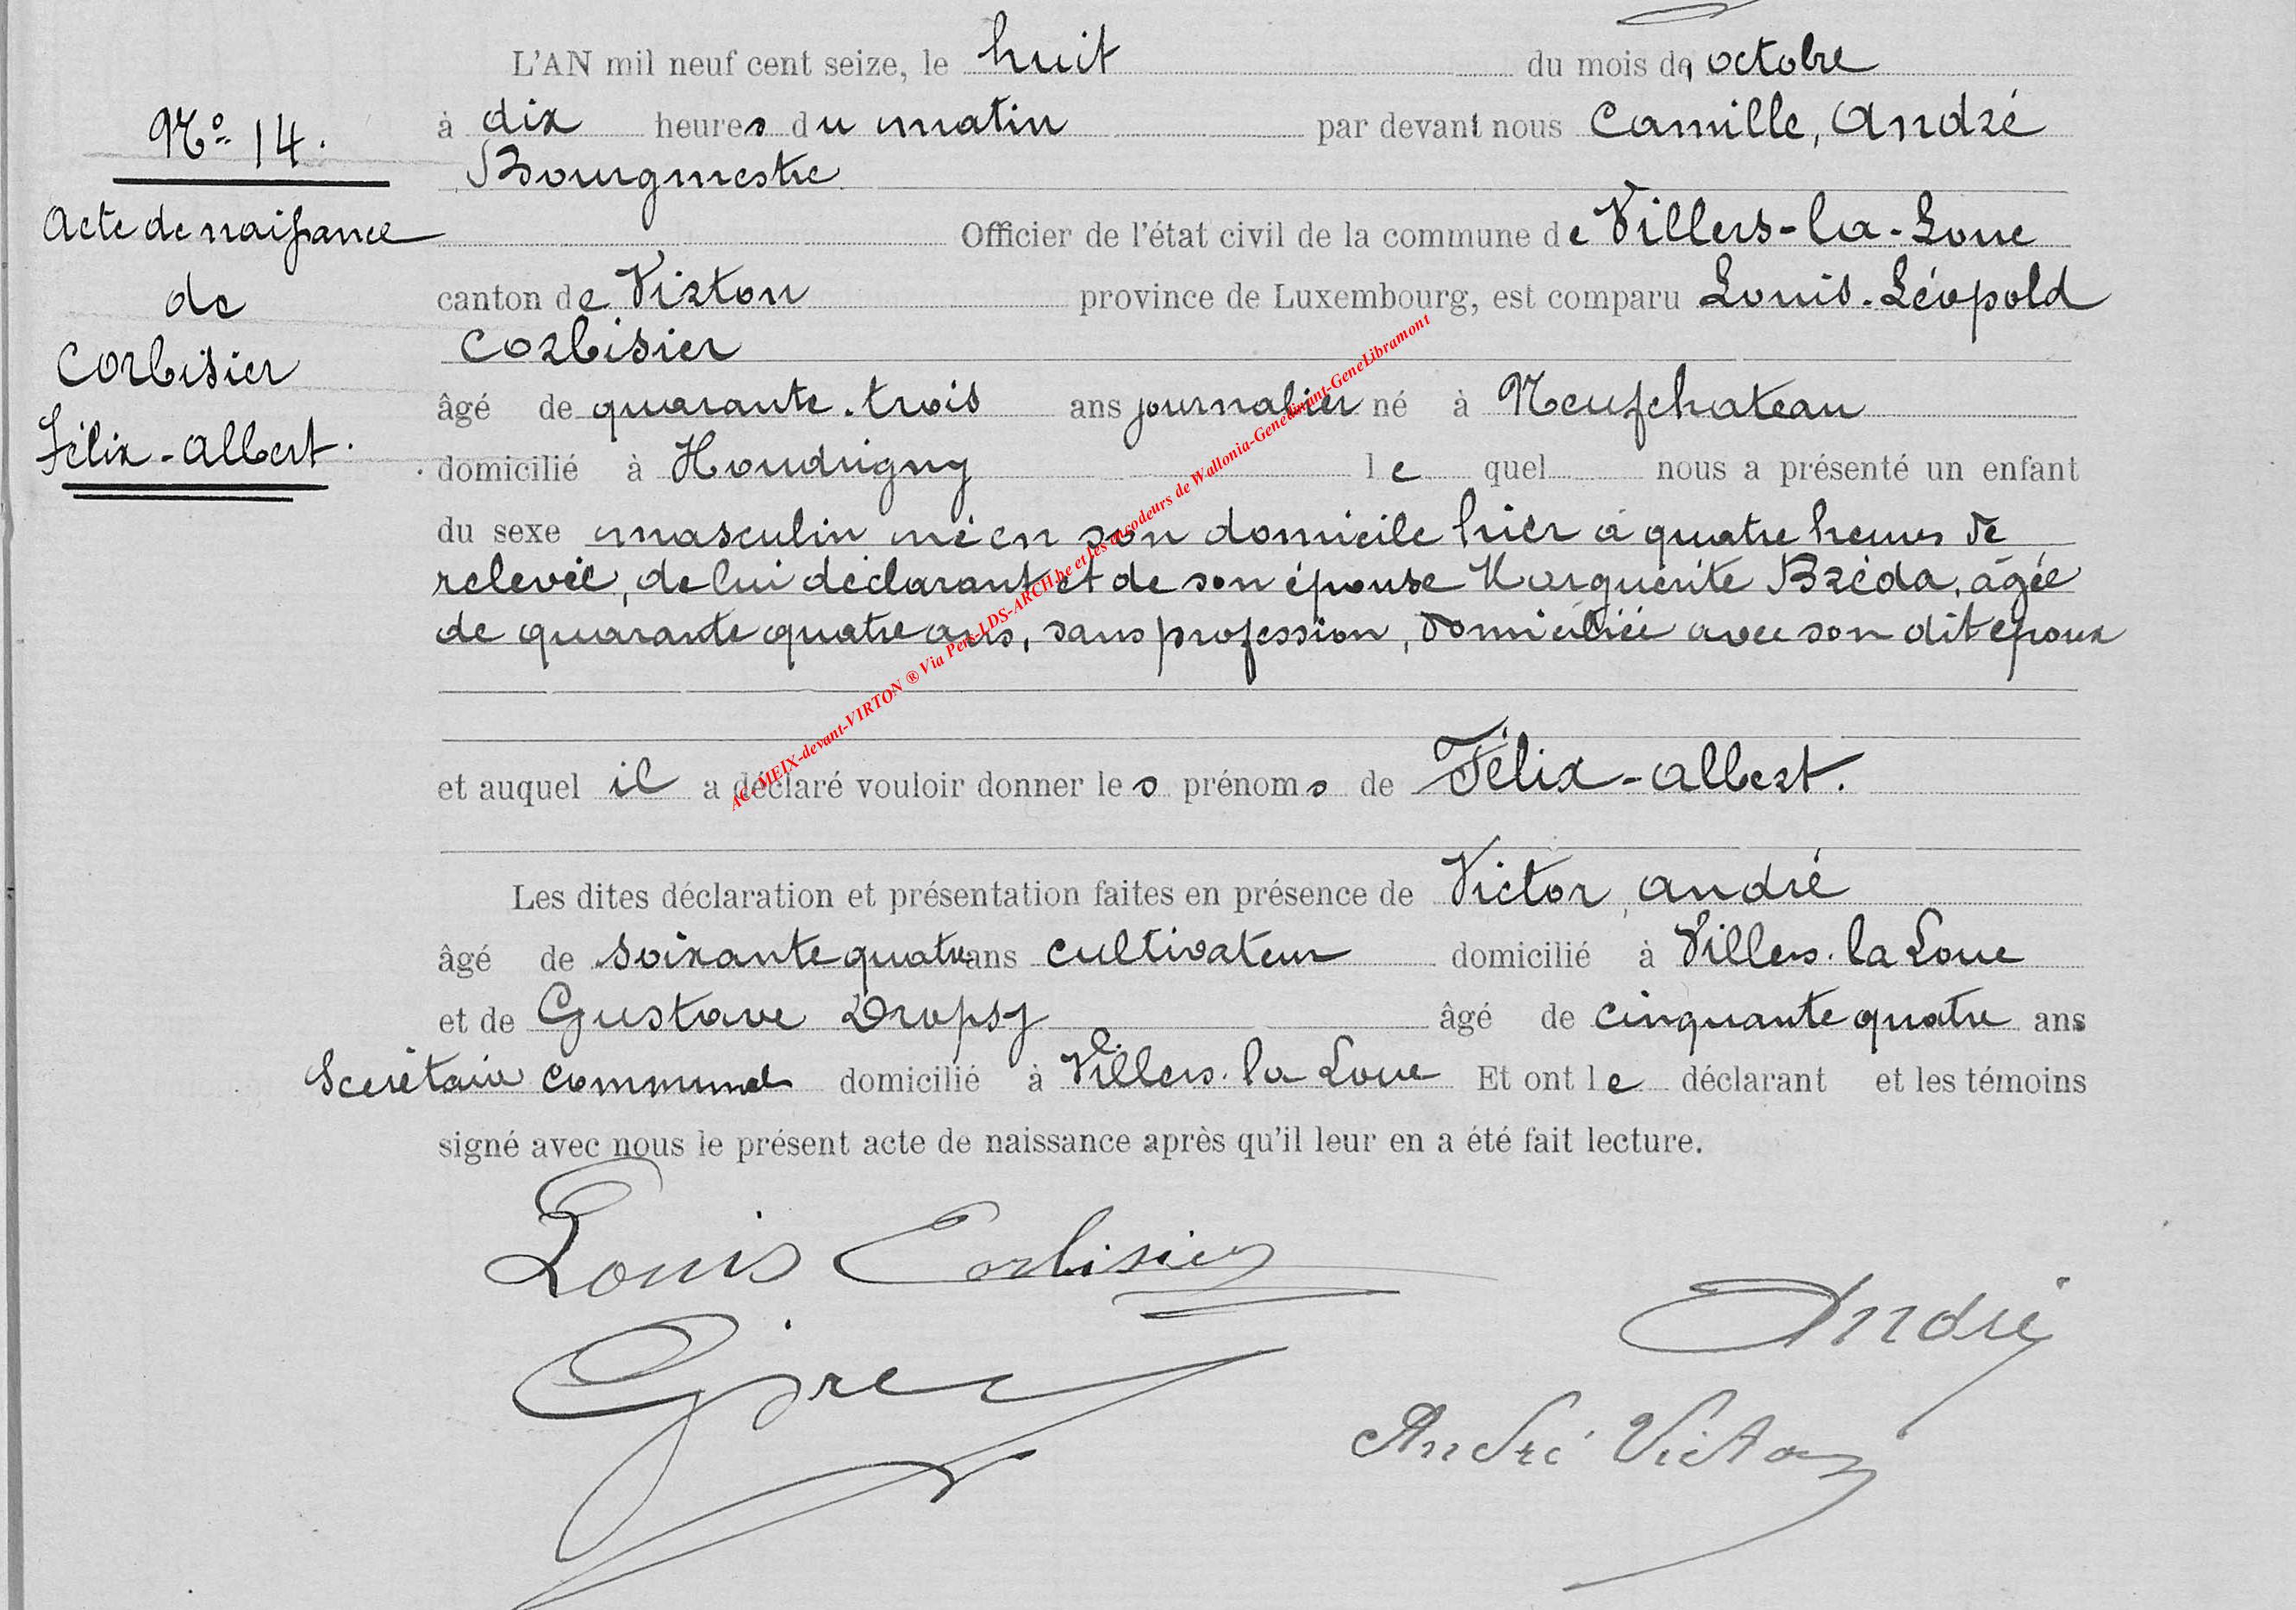 L'AN mil neuf cent seize, le huit du mois de octobre
à dix heures du matin par devant nous Camille, André
Bourgmestre
Officier de l'état civil de la commune de Villers-la-Loue
canton de Virton province de Luxembourg, est comparu Louis-Léopold
Corbisier
âgé de quarante-trois ans journalier né à Neufchateau
domicilié à Houdrigny lequel nous a présenté un enfant
du sexe masculin né en son domicile hier à quatre heures de
relevée, de lui déclarant et de son épouse Marguerite Bréda, âgée
de quarante quatre ans, sans profession, domiciliée avec son dit époux
et auquel il a déclaré vouloir donner les prénoms de Félix-Albert.
Les dites déclaration et présentation faites en présence de Victor, André
âgé de soixante quatre ans cultivateur domicilié à Villers-la Loue
et de Gustave Dropsy âgé de cinquante quatre ans
Secrétaire communal domicilié à Villers-la Loue Et ont le déclarant et les témoins
signé avec nous le présent acte de naissance après qu'il leur en a été fait lecture.
No 14.
Acte de naissance
de
Corbisier
Félix-Albert.
Louis Corbisier
André
André Victor
AC MEIX-devant-VIRTON ® Via Pers-LDS-ARCH.be et les encodeurs de Wallonia-Genedinant-GeneLibramont